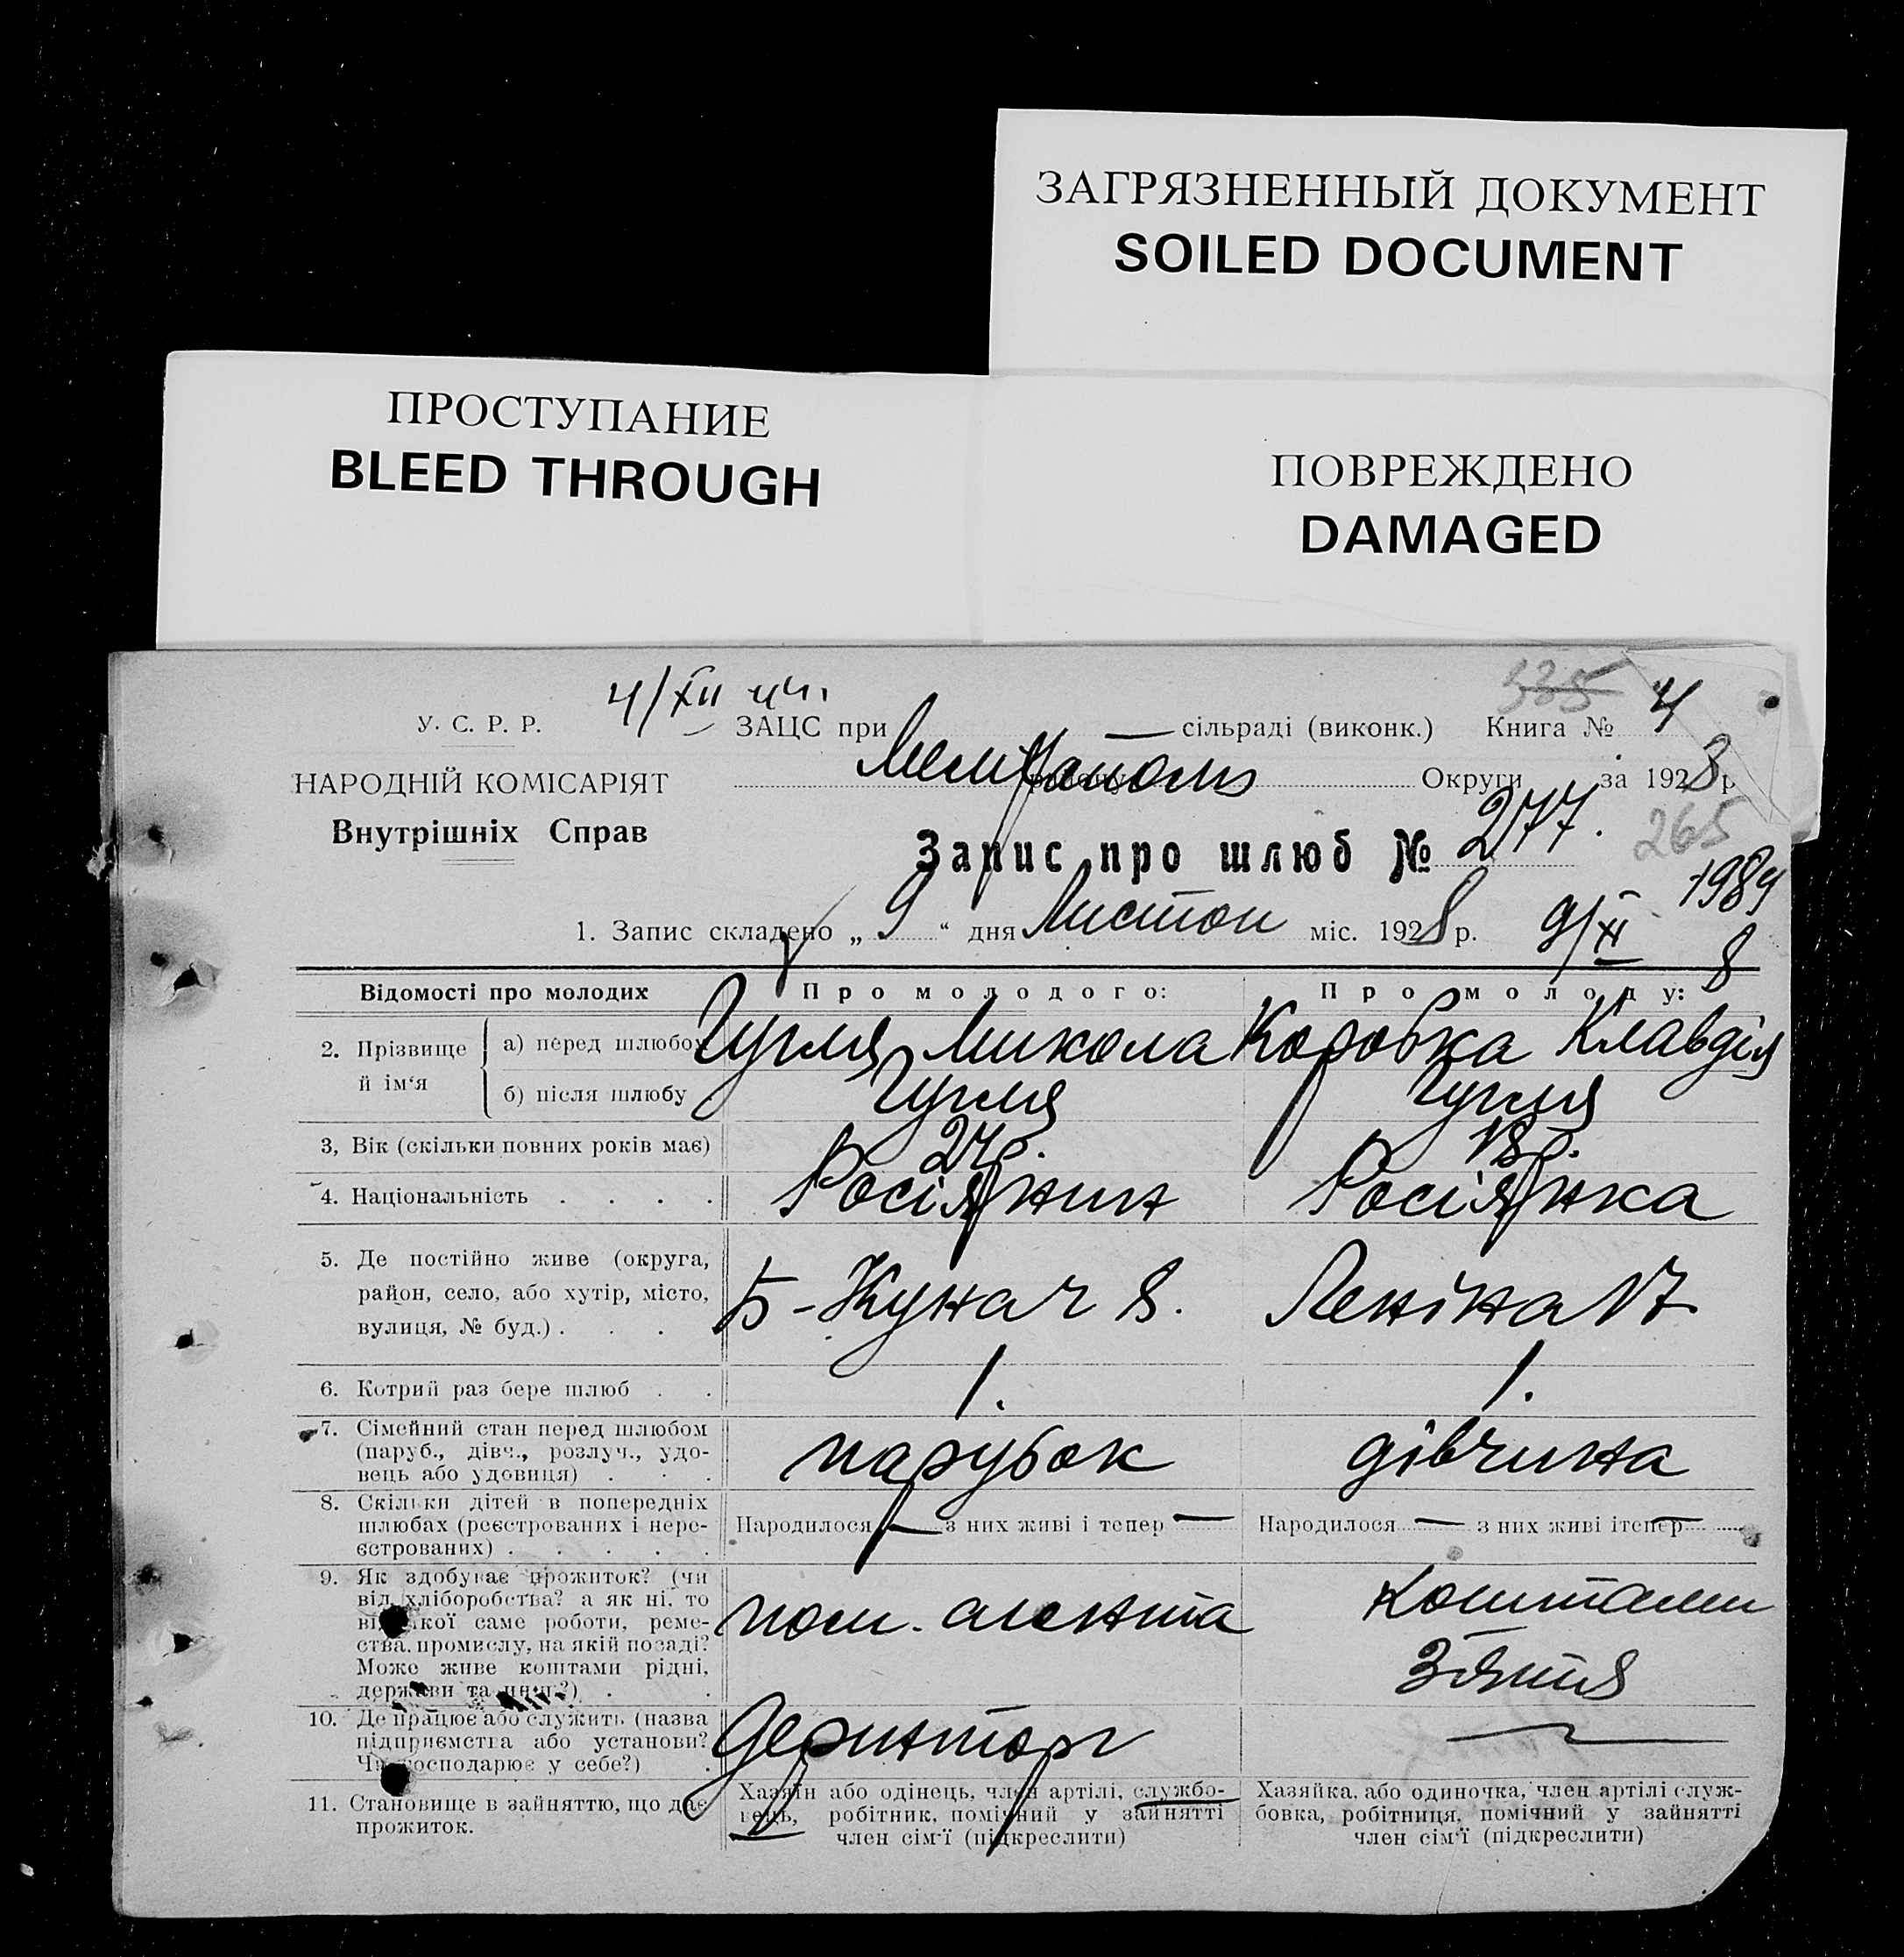 ЗАГРЯЗНЕННЫЙ ДОКУМЕНТ
SOILED DOCUMENT
ПРОСТУПАНИЕ
BLEED THROUGH
ПОВРЕЖДЕНО
DAMAGED
4/XII
335 4
У. С. Р. Р. ЗАЦС при — сільраді (виконк.) Книга №
НАРОДНІЙ КОМІСАРІЯТ Мелітополь Округи за 1928 р
Внутрішніх Справ
Запис про шлюб № 277. 265
1984
1. Запис складено „ 9 “ дня Листоп міс. 1928 р. 9/XI 8
Відомості про молодих Про молодого: Про молоду:
2. Прізвище й ім‘я
а) перед шлюбом Чугля Микола Коровка Клавдія
б) після шлюбу Чугля Чугля
3, Вік (скільки повних років має) 24р. 18р.
4. Національність . . . . Росіянин Росіянка
5. Де постійно живе (округа,
район, село, або хутір, місто, Б-Кунач 8. Леніна 17
вулиця, № буд.) . . .
6. Котрий раз бере шлюб . . 1. 1.
7. Сімейний стан перед шлюбом
(паруб., дівч., розлуч., удо- парубок дівчина
вець або удовиця) . . .
8. Скільки дітей в попередніх
шлюбах (реєстрованих і нере- Народилося — з них живі і тепер — Народилося — з них живі і тепер —
єстрованих) . . . . .
9. Як здобуває прожиток? (чи
від хліборобства? а як ні, то коштами
від якої саме роботи, реме- пом. агента
ства, промислу, на якій посаді?
Може живе коштами рідні, зятя
держави та инш?) . .
10. Де працює або служить (назва Держторг —
підприємства або установи?
Чи господарює у себе?) .
11. Становище в зайняттю, що дає
прожиток.
Хазяїн або одінець, член артілі, службо-
вець, робітник, помічний у зайнятті
член сім‘ї (підкреслити)
Хазяйка, або одиночка, член артілі служ-
бовка, робітниця, помічний у зайнятті
член сім‘ї (підкреслити)